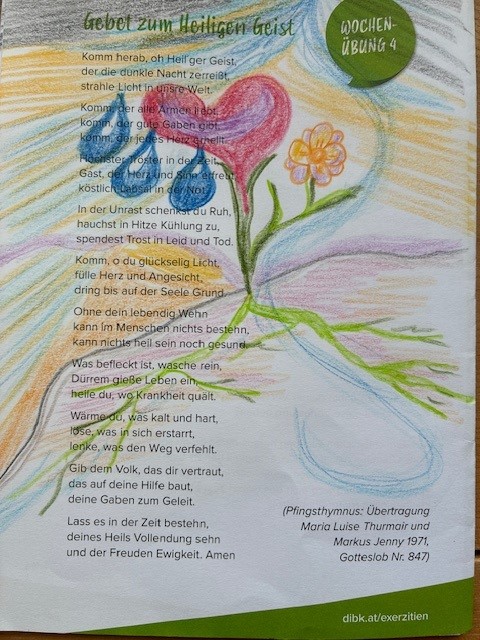 Gebet zum Heiligen Geist
WOCHEN-
ÜBUNG 4
Komm herab, oh Heil'ger Geist,
der die dunkle Nacht zerreißt,
strahle Licht in unsre Welt.
Komm, der alle Armen liebt,
komm, der gute Gaben gibt,
komm, der jedes Herz erhellt.
Höchster Tröster in der Zeit,
Gast, der Herz und Sinn erfreut,
köstlich Labsal in der Not.
In der Unrast schenkst du Ruh,
hauchst in Hitze Kühlung zu,
spendest Trost in Leid und Tod.
Komm, o du glückselig Licht,
fülle Herz und Angesicht,
dring bis auf der Seele Grund.
Ohne dein lebendig Wehn
kann im Menschen nichts bestehn,
kann nichts heil sein noch gesund.
Was befleckt ist, wasche rein,
Dürrem gieße Leben ein,
heile du, wo Krankheit quält.
Wärme du, was kalt und hart,
löse, was in sich erstarrt,
lenke, was den Weg verfehlt.
Gib dem Volk, das dir vertraut,
das auf deine Hilfe baut,
deine Gaben zum Geleit.
Lass es in der Zeit bestehn,
deines Heils Vollendung sehn
und der Freuden Ewigkeit. Amen
(Pfingsthymnus: Übertragung
Maria Luise Thurmair und
Markus Jenny 1971,
Gotteslob Nr. 847)
dibk.at/exerzitien